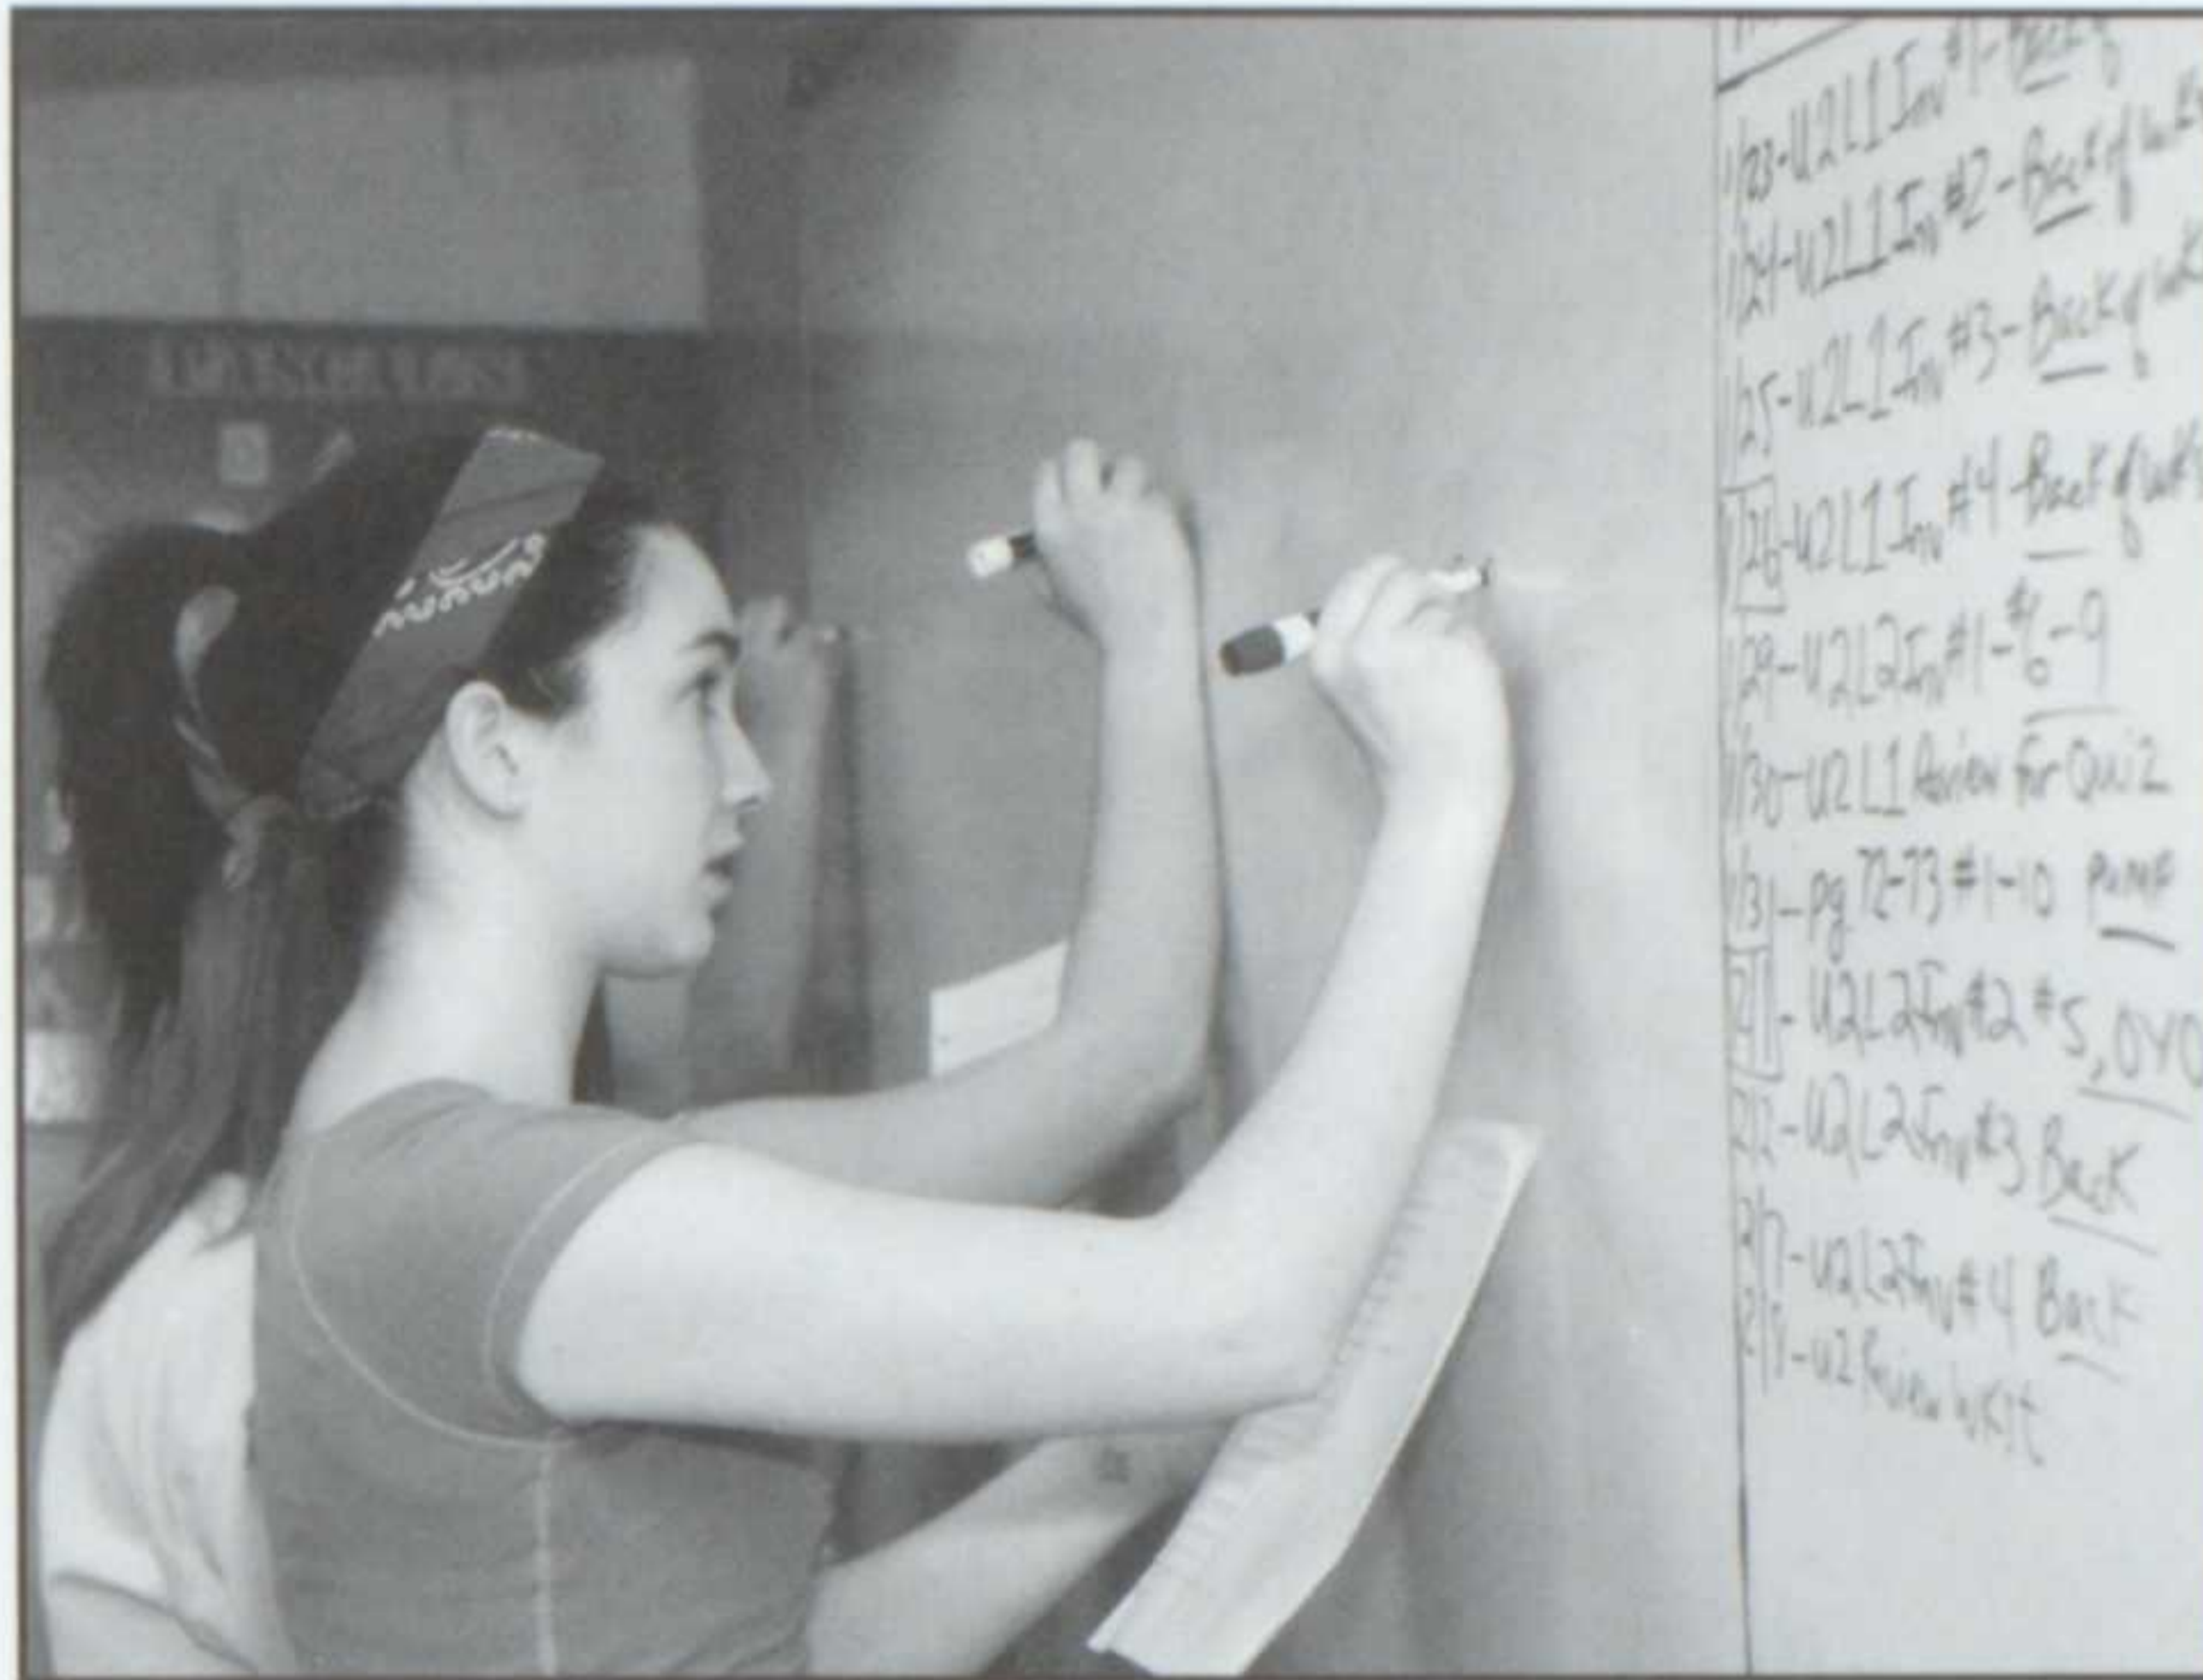 1/23-U2L1 Inv #1-Back of
1/24-U2L1 Inv #2-Back of WK
1/25-U2L1 Inv #3-Back of WK
1/26-U2L1 Inv #4-Back of WK
1/29-U2L2 Inv #1-#6-9
1/30-U2L1 Review for Quiz
1/31-pg 72-73 #1-10
2/1-U2L2 Inv #2 #5, OYO
2/2-U2L2 Inv #3 Back
2/7-U2L2 Inv #4 Back
2/8-U2 Review